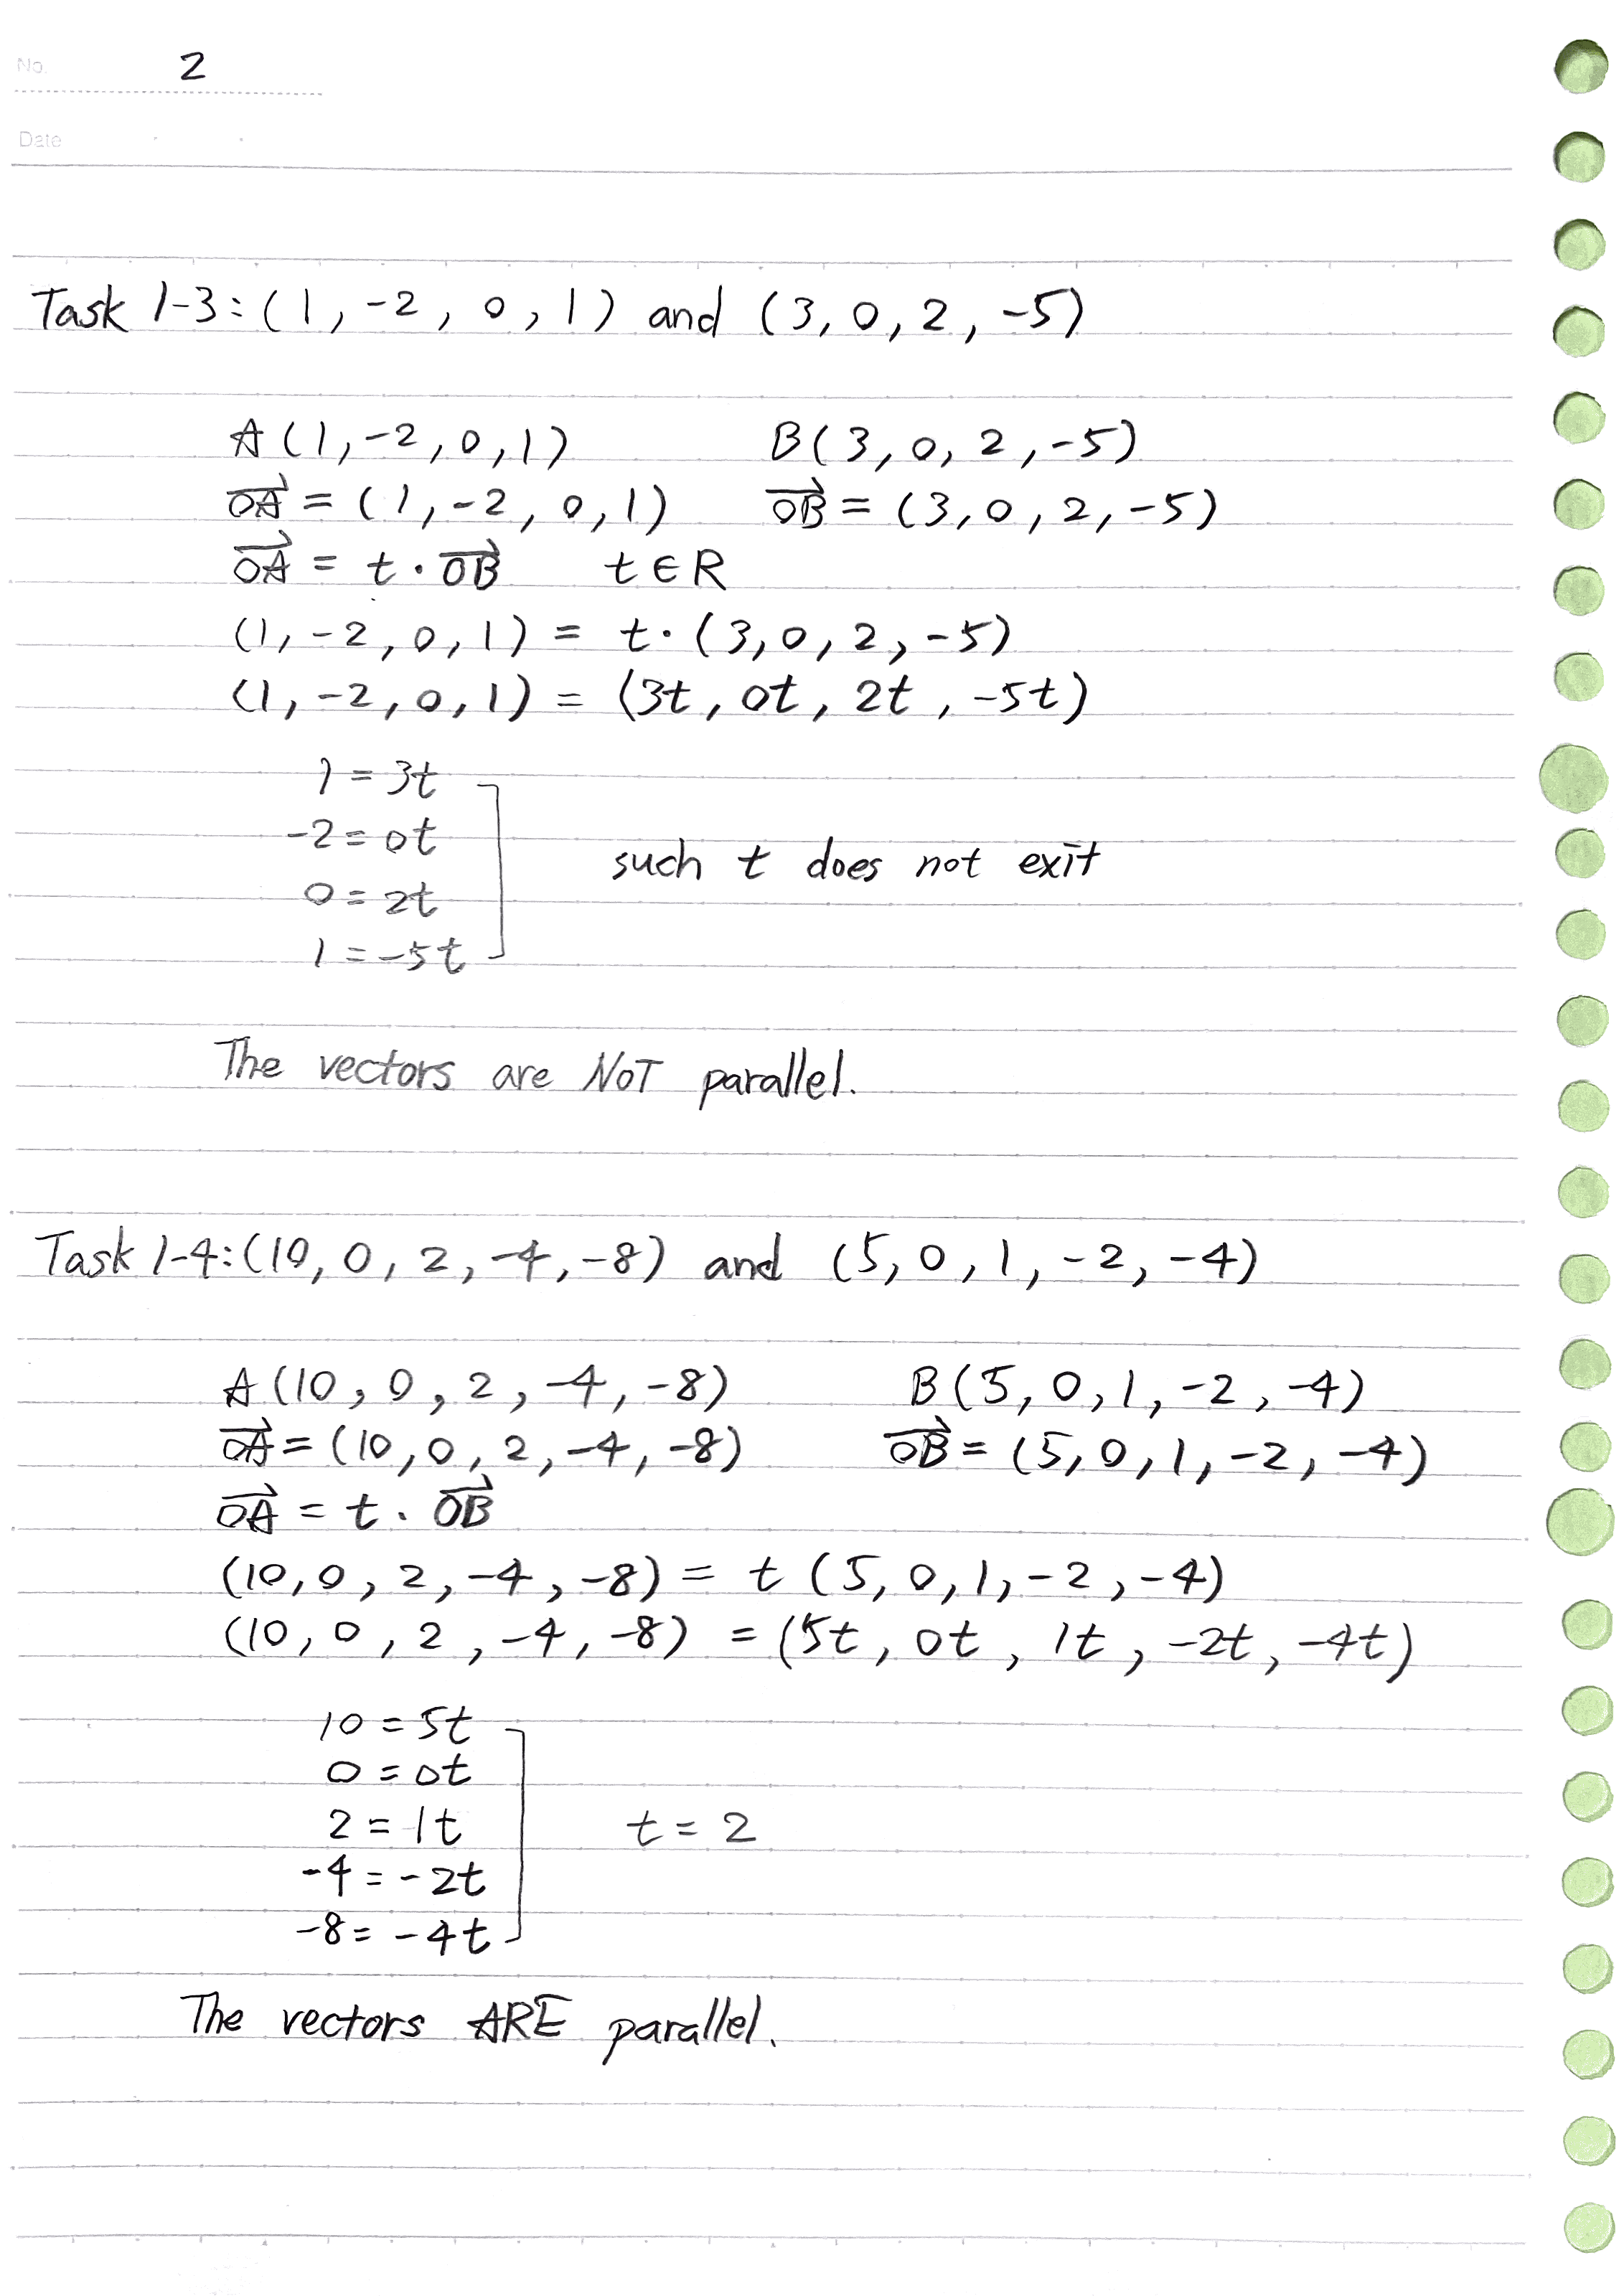 No. 2
Date
Task 1-3: (1, -2, 0, 1) and (3, 0, 2, -5)
A(1, -2, 0, 1) B(3, 0, 2, -5)
→OA = (1, -2, 0, 1) →OB = (3, 0, 2, -5)
→OA = t · →OB t ∈ R
(1, -2, 0, 1) = t · (3, 0, 2, -5)
(1, -2, 0, 1) = (3t, 0t, 2t, -5t)
1 = 3t
-2 = 0t
such t does not exit
0 = 2t
1 = -5t
The vectors are NOT parallel.
Task 1-4: (10, 0, 2, -4, -8) and (5, 0, 1, -2, -4)
A(10, 0, 2, -4, -8) B(5, 0, 1, -2, -4)
→OA = (10, 0, 2, -4, -8) →OB = (5, 0, 1, -2, -4)
→OA = t · →OB
(10, 0, 2, -4, -8) = t (5, 0, 1, -2, -4)
(10, 0, 2, -4, -8) = (5t, 0t, 1t, -2t, -4t)
10 = 5t
0 = 0t
2 = 1t t = 2
-4 = -2t
-8 = -4t
The vectors ARE parallel.